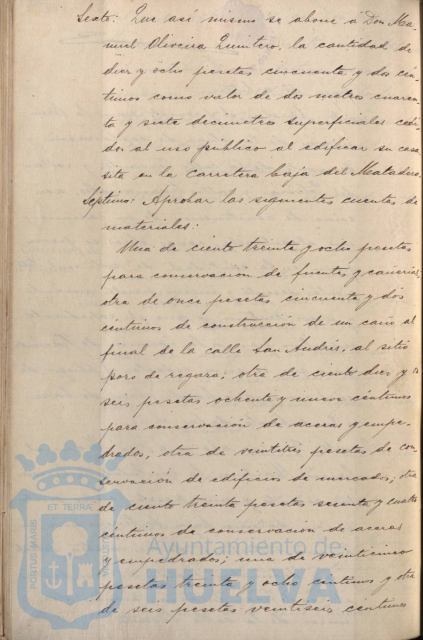 Sexto: Que así mismo se abone á Don Ma-
nuel Oliveira Quintero, la cantidad de
diez y ocho pesetas cincuenta y dos cén-
timos como valor de dos metros cuaren-
ta y siete decímetros superficiales cedi-
dos al uso público al edificar su casa
sita en la carretera baja del Matadero.
Séptimo: Aprobar las siguientes cuentas de
materiales:
Una de ciento treinta y ocho pesetas
para conservación de fuentes y cañerias,
otra de once pesetas cincuenta y dos
céntimos de construcción de un caño al
final de la calle San Andrés, al sitio
de ; otra de ciento diez y
seis pesetas ochenta y nueve céntimos
para conservación de aceras y empe-
drados, otra de veintitres pesetas de con-
servación de edificios de mercados; otra
de ciento treinta pesetas sesenta y cuatro
céntimos de conservación de aceras
y empedrados; una de veinticinco
pesetas treinta y ocho céntimos y otra
de seis pesetas veintiseis céntimos
PORTUS MARIS
ET TERRAE
Ayuntamiento de
HUELVA